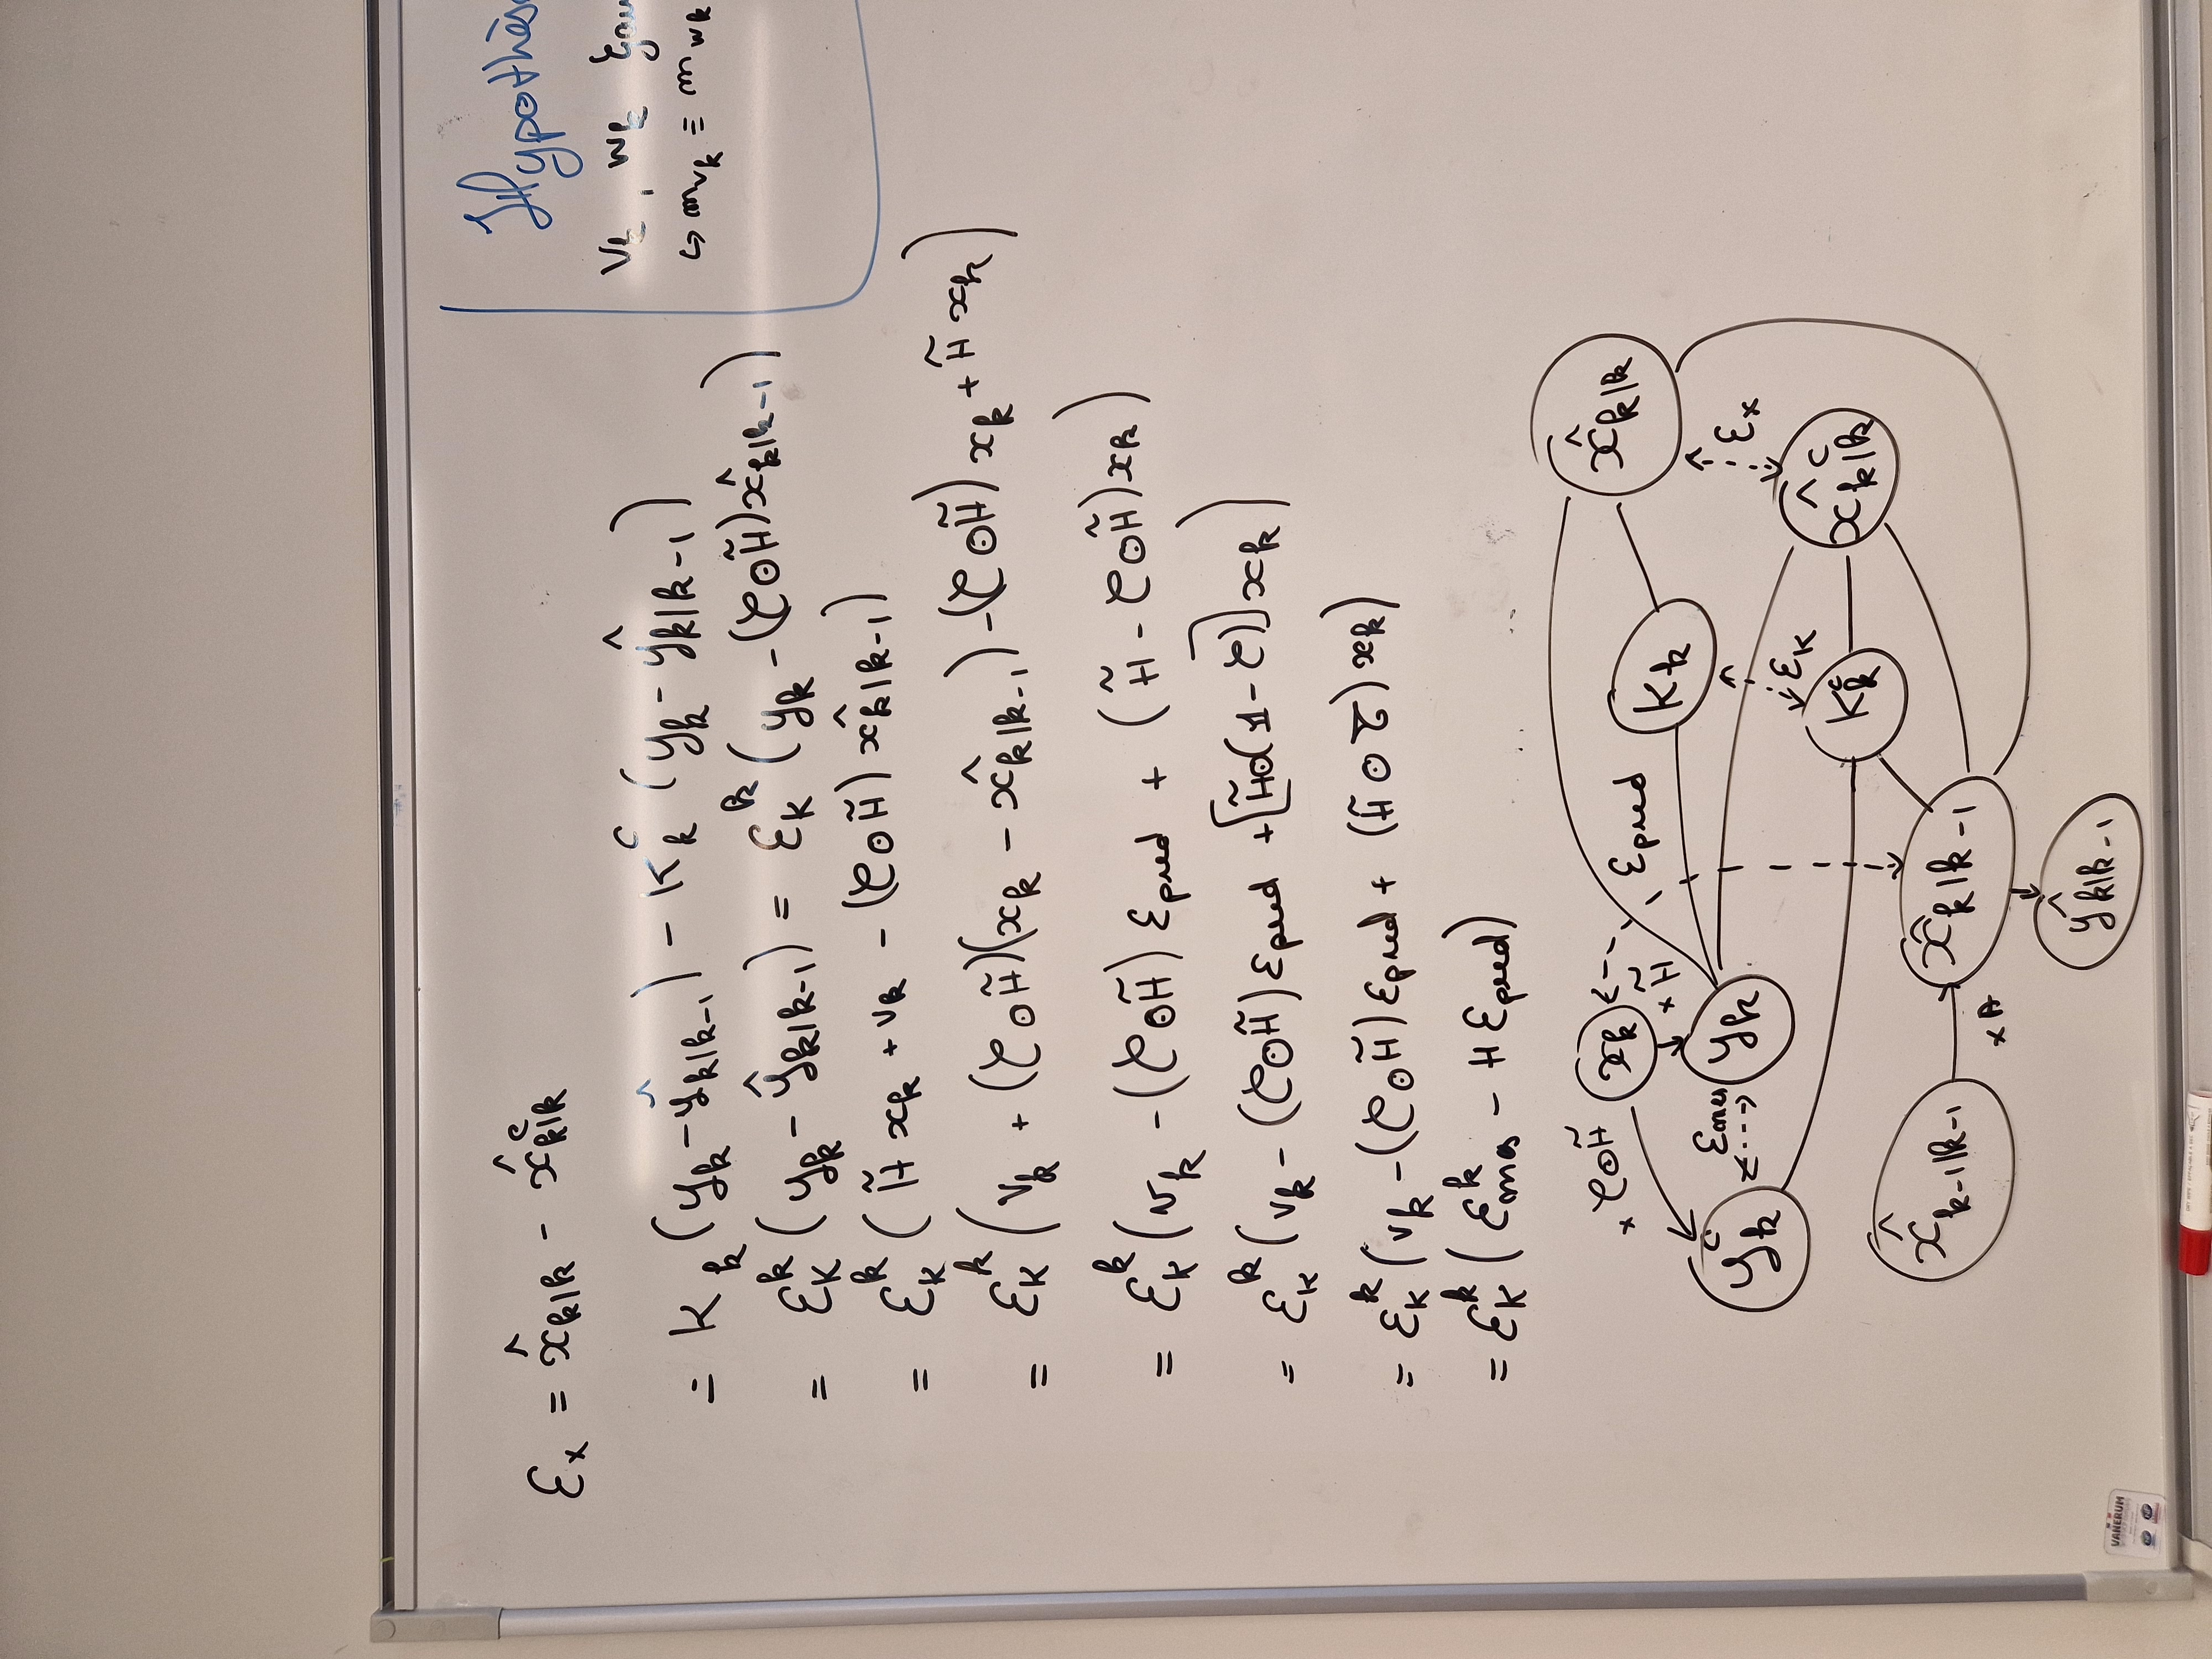 ε_x = x̂_{k|k} - x̂^c_{k|k}
= K_k (y_k - ŷ_{k|k-1}) - K^c_k (y_k - ŷ_{k|k-1})
= ε_K^k (y_k - ŷ_{k|k-1}) = ε_K^k (y_k - (𝒞⊙H̃) x̂_{k|k-1})
= ε_K^k (H̃ x_k + v_k - (𝒞⊙H̃) x̂_{k|k-1})
= ε_K^k (v_k + (𝒞⊙H̃)(x_k - x̂_{k|k-1}) - (𝒞⊙H̃) x_k + H̃ x_k)
= ε_K^k (v_k - (𝒞⊙H̃) ε_pred + (H̃ - 𝒞⊙H̃) x_k)
= ε_K^k (v_k - (𝒞⊙H̃) ε_pred + [H̃⊙(𝟙 - 𝒞)] x_k)
= ε_K^k (v_k - (𝒞⊙H̃) ε_pred + (H̃ ⊙ 𝒞̄) x_k)
= ε_K^k (ε_mes^k - H ε_pred)
Hypothès
v_k, w_k gau
↪ m_{v_k} = m_{w_k}
x 𝒞⊙H̃
x_k
x H̃
ε_pred
K_k
x̂_{k|k}
y^c_k
ε_mes
y_k
ε_x
ε_K
K^c_k
x̂^c_{k|k}
x̂_{k-1|k-1}
x A
x̂_{k|k-1}
ŷ_{k|k-1}
VANERUM